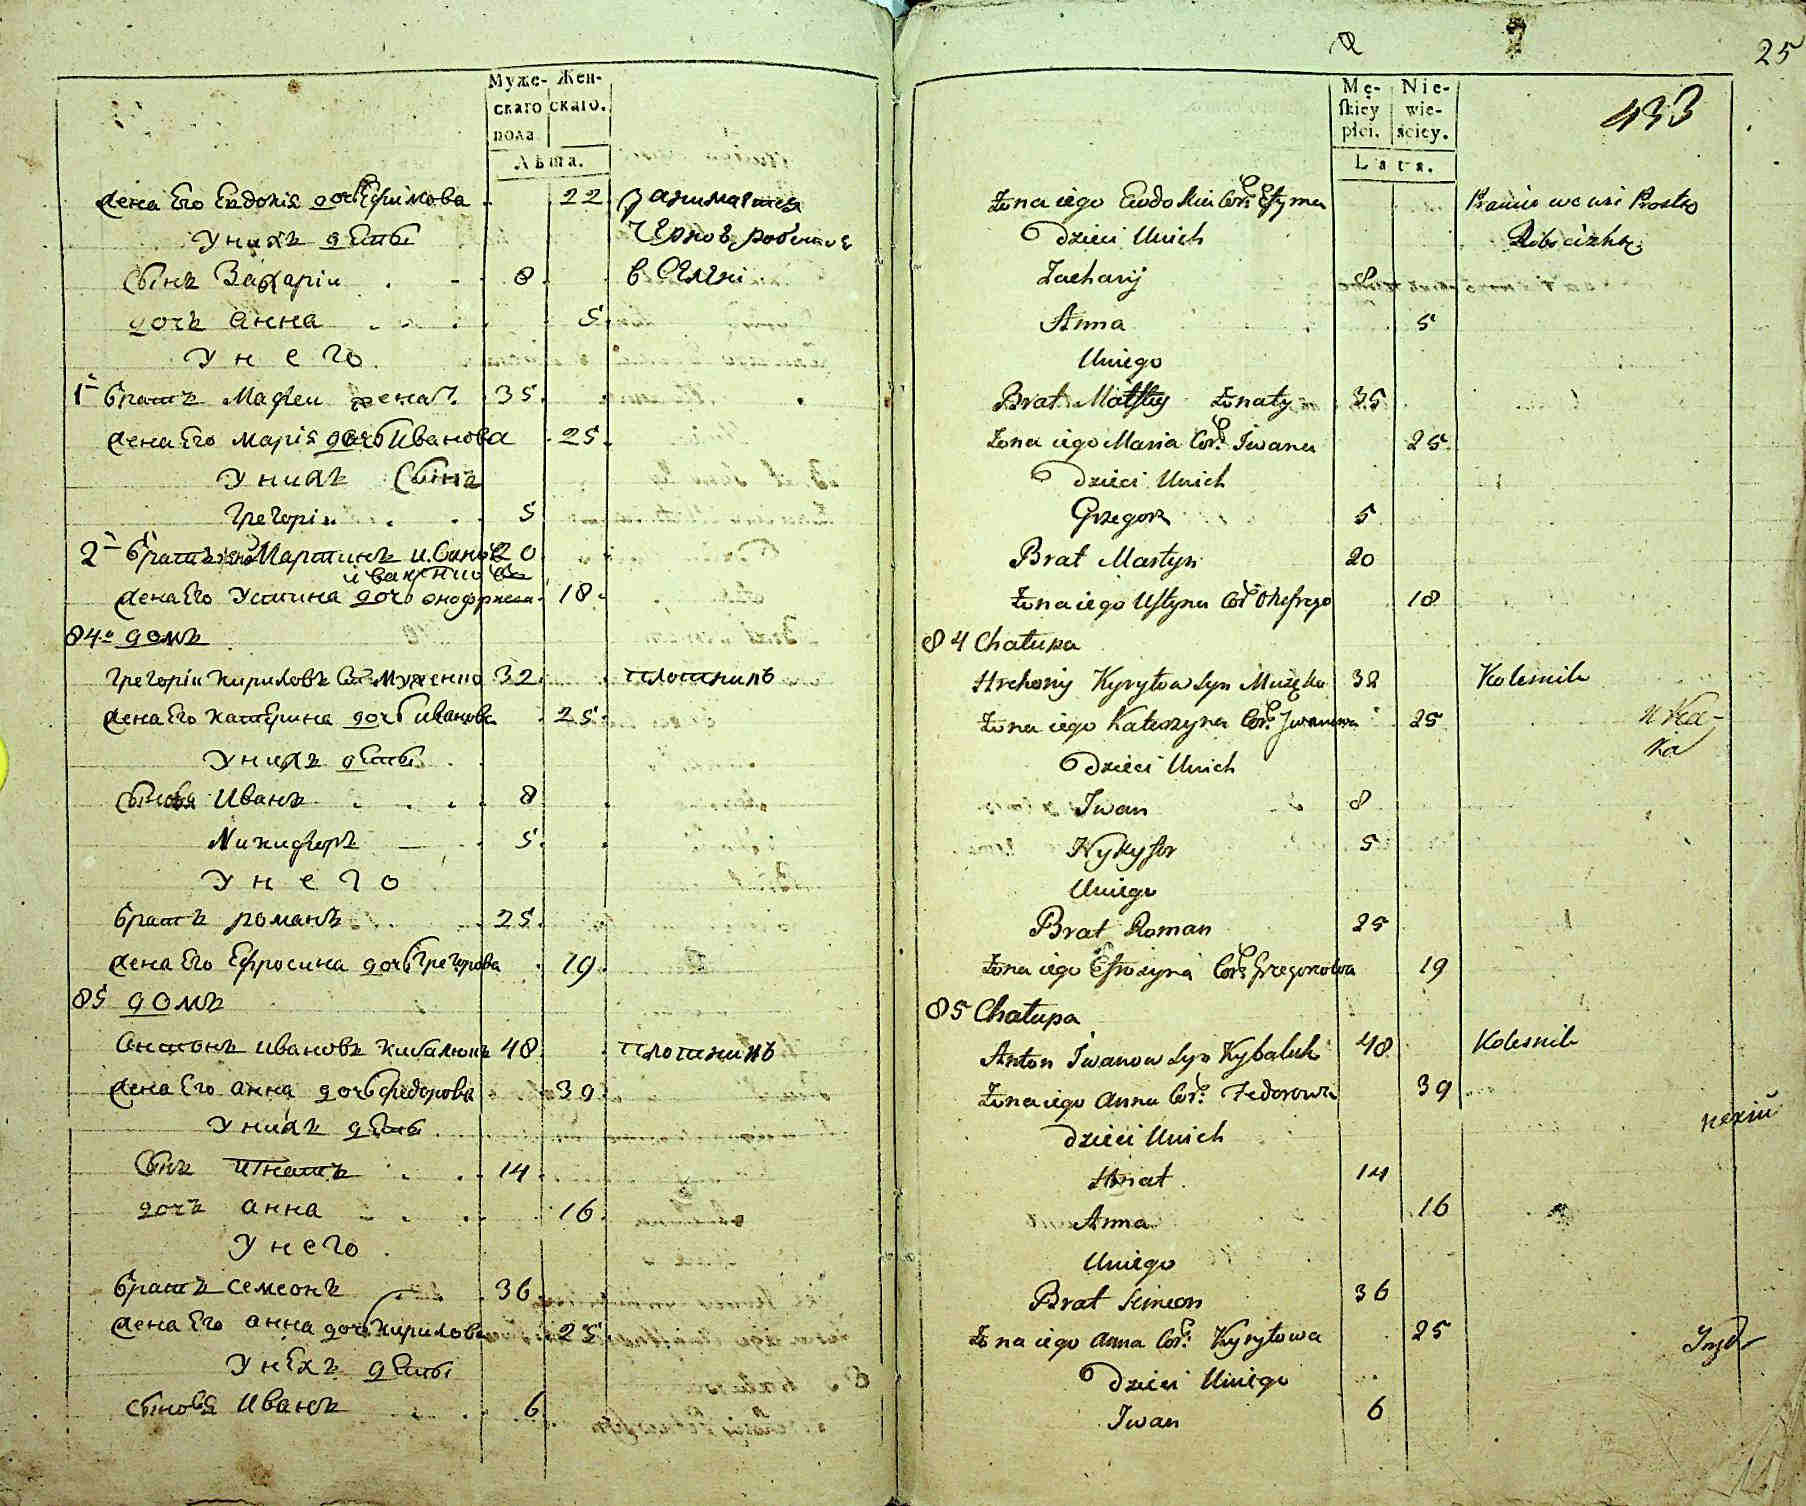 Муже- Жен-
скаго скаго.
пола
Лѣта.
жена Его Евдокія дочь Ефимова 22 занимается
У нихъ дѣти Чернов работаю
Сынъ Захаріи 8 в Селеніи
дочь анна 5
У него
1 братъ Мафеи женат. 35
жена Его марія дочь Иванова 25
У нихъ Сынъ
Грегоріи 5
2 братъ Мартинъ 20
жена Его Устина дочь онофріева 18
84 домъ
Грегоріи Кириловъ Сынъ Муженко 32 плотникъ
жена Его катерина дочь иванова 25
У нихъ дѣти
сыновя Иванъ 8
Никифоръ 5
У него
братъ романъ 25
жена Его Ефросина дочь Грегорова 19
85 домъ
Антонъ ивановъ кибалюкъ 48 плотникъ
жена Его анна дочь федорова 39
У нихъ дѣти
Сынъ игнатъ 14
дочь анна 16
У него
братъ семеонъ 36
жена Его анна дочь Кирилова 25
У нѣхъ дѣти
сыновя Иванъ 6
25
433
Mę- Nie-
skiey wie-
płci. ściey.
Lata.
Żona iego Ewdokia Cor: Efyma
Dzieci Unich
Zachary 8
Anna 5
Uniego
Brat Matfiy Żonaty 35
Żona iego Maria Cor: Iwana 25
Dzieci Unich
Grzegorz 5
Brat Martyn 20
Żona iego Ustyna Cor: Onofrego 18
84 Chałupa
Hrehory Kyryłow syn Mużęko 32 Kolesnik
Żona iego Katerzyna Cor: Jwanowa 25
Dzieci Unich
Iwan 8
Nykyfor 5
Uniego
Brat Roman 25
Żona iego Efrozyna Cor: Grzegorowa 19
85 Chałupa
Anton Iwanow syn Kybaluk 48 Kolesnik
Żona iego Anna Cor: Fedorowa 39
Dzieci Unich
Hnat 14
Anna 16
Uniego
Brat Simeon 36
Żona iego Anna Cor: Kyryłowa 25
Dzieci Uniego
Iwan 6